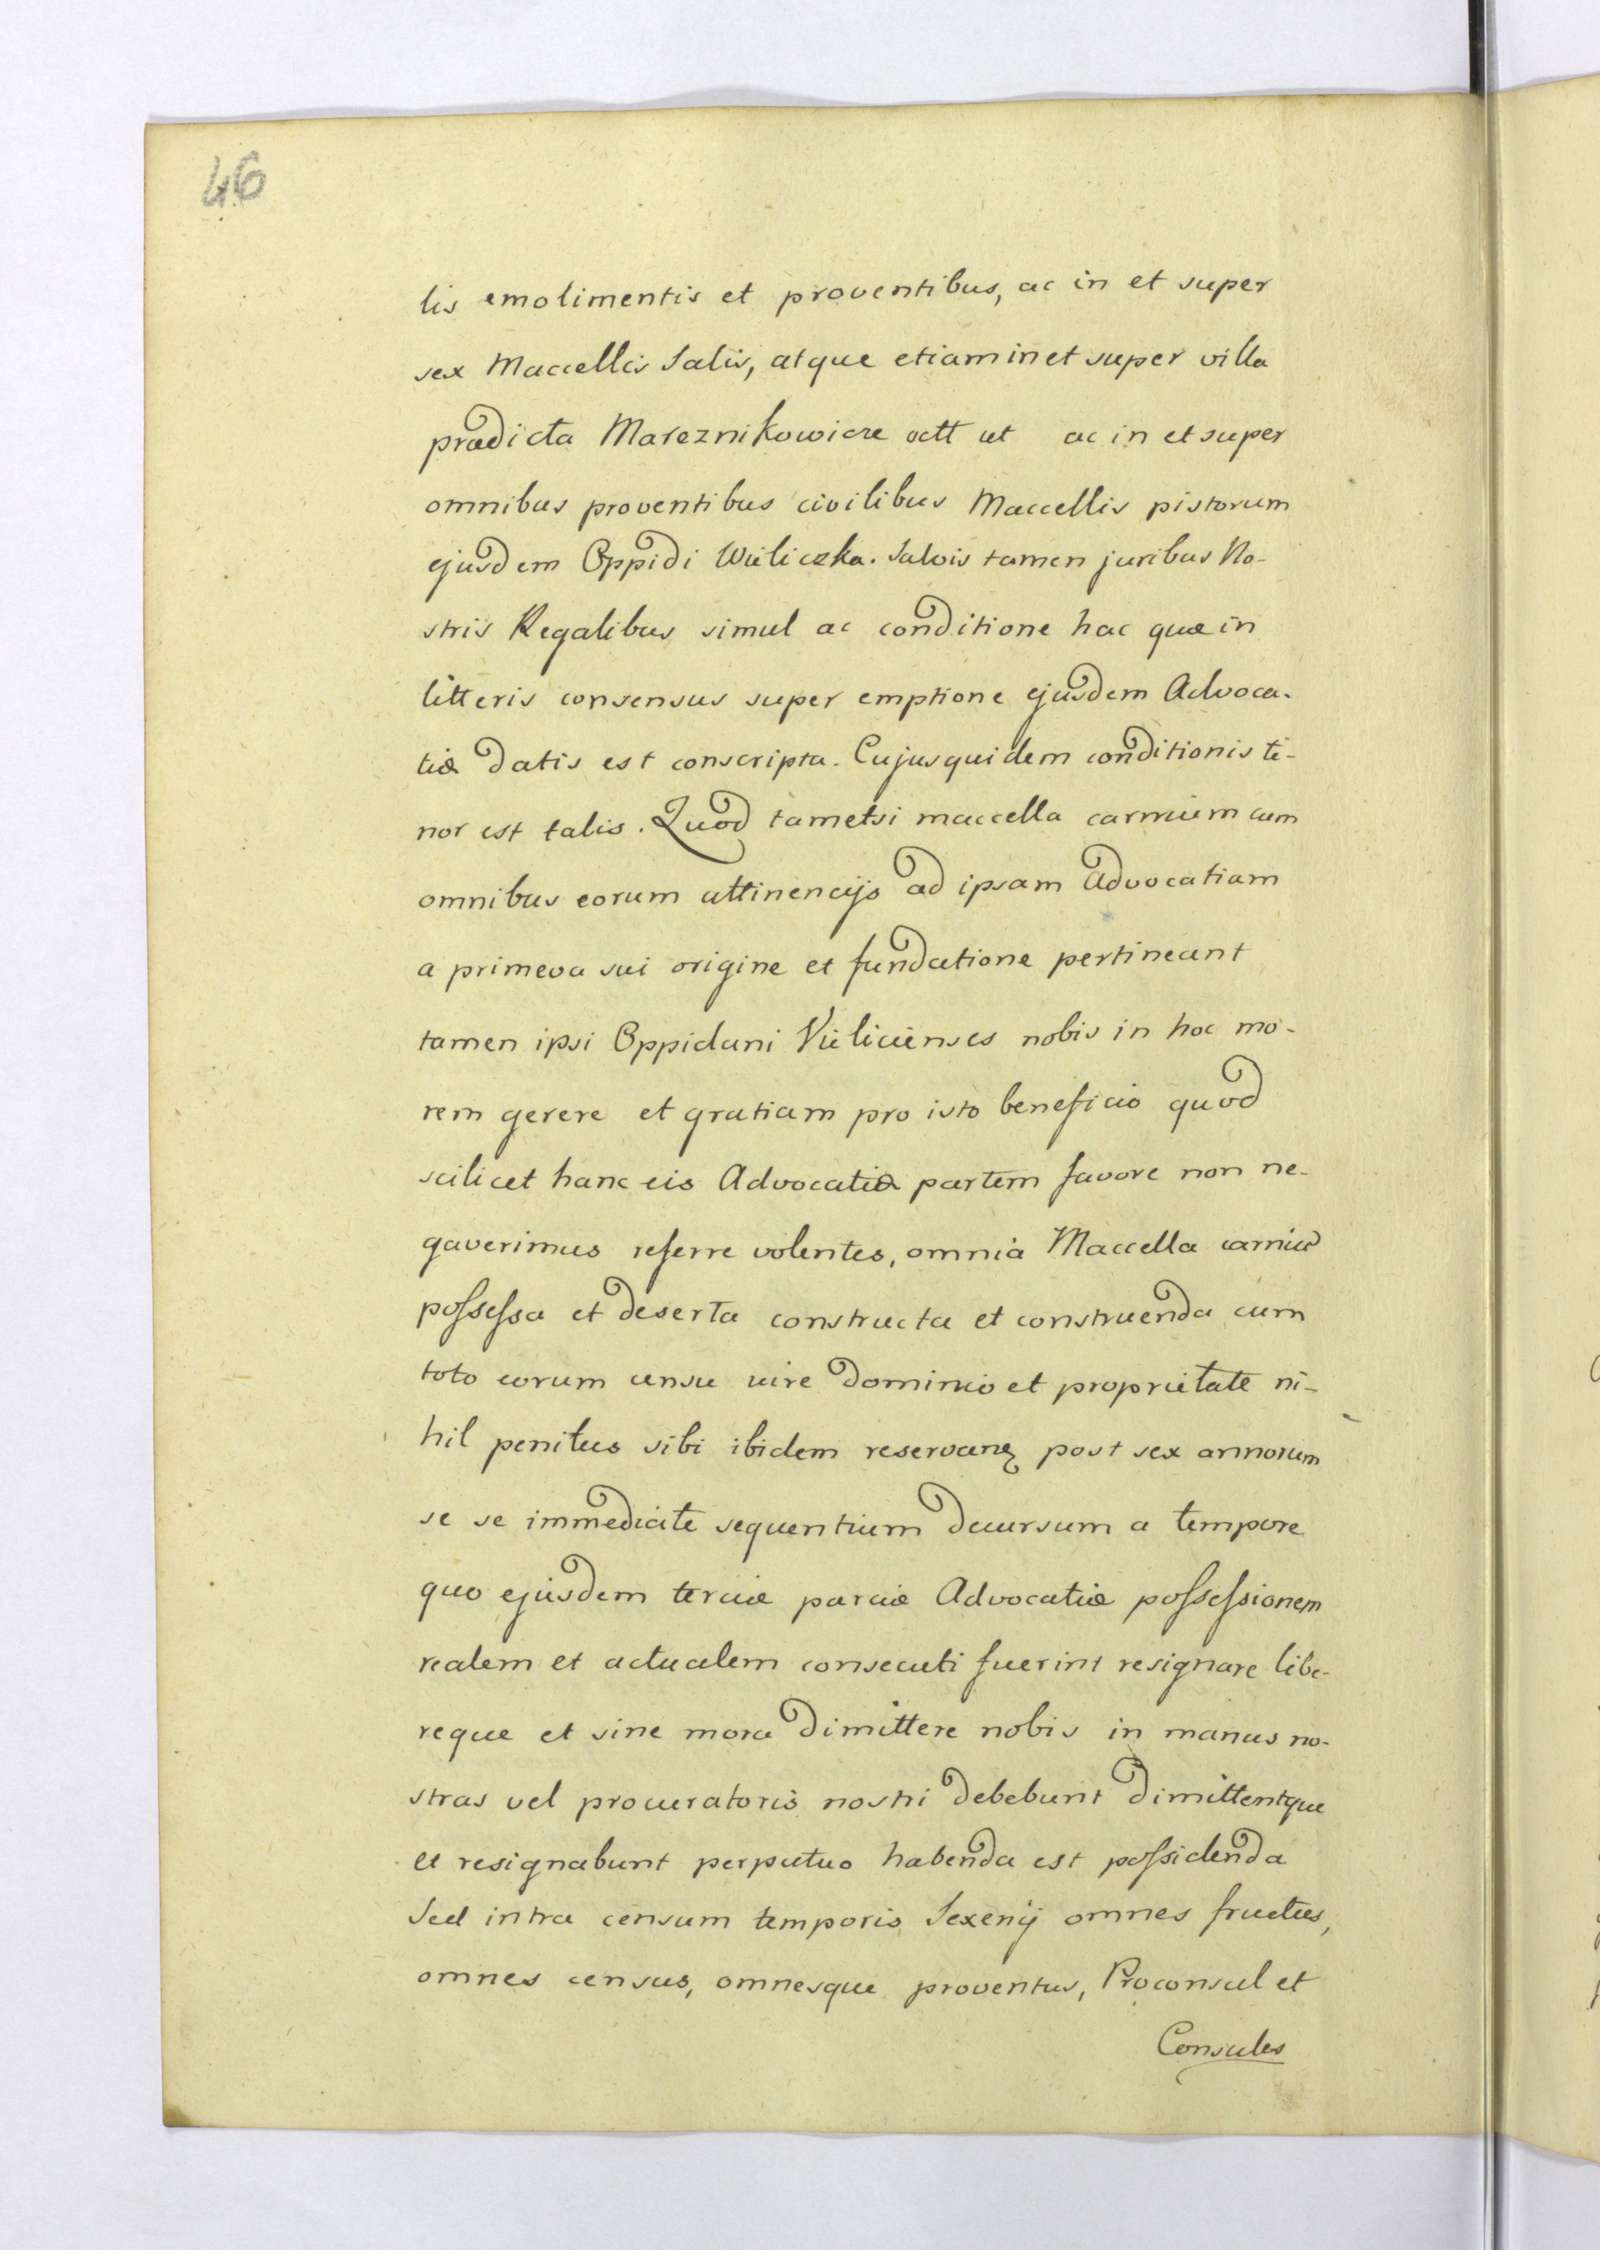 46
lis emolimentis et proventibus, ac in et super
sex Maccellis Salis, atque etiam in et super villa
prædicta Mareznikowicze octt ut ac in et super
omnibus proventibus civilibus Maccellis pistorum
ejusdem Oppidi Wieliczka. Salvis tamen juribus No-
stris Regalibus simul ac conditione hac quæ in
litteris consensus super emptione ejusdem Advoca-
tiæ datis est conscripta. Cujusquidem conditionis te-
nor est talis. Quod tametsi maccella carnium cum
omnibus eorum attinencijs ad ipsam Advocatiam
a primeva sui origine et fundatione pertineant
tamen ipsi Oppidani Vielicienses nobis in hoc mo-
rem gerere et gratiam pro isto beneficio quod
scilicet hanc eis Advocatiæ partem favore non ne-
gaverimus referre volentes, omnia Maccella carniū
possessa et deserta constructa et construenda cum
toto eorum censu iure dominio et proprietate ni-
hil penitus sibi ibidem reservanꝫ post sex annorum
se se immediate sequentium decursum a tempore
quo ejusdem terciæ parciæ Advocatiæ possessionem
realem et actualem consecuti fuerint resignare libe-
reque et sine mora dimittere nobis in manus no-
stras vel procuratoris nostri debebunt dimittentque
et resignabunt perpetuo habenda est possidenda
Sed intra censum temporis Sexenij omnes fructus,
omnes census, omnesque proventus, Proconsul et
Consules